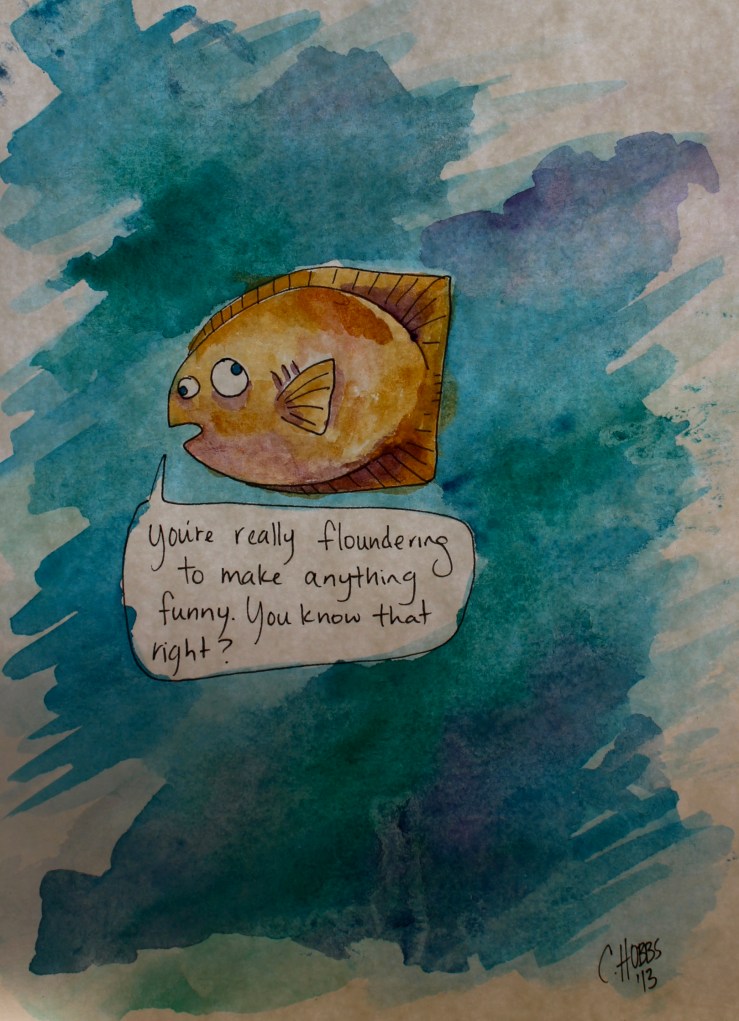 You're really floundering
to make anything
funny. You know that
right?
C. HOBBS
'13